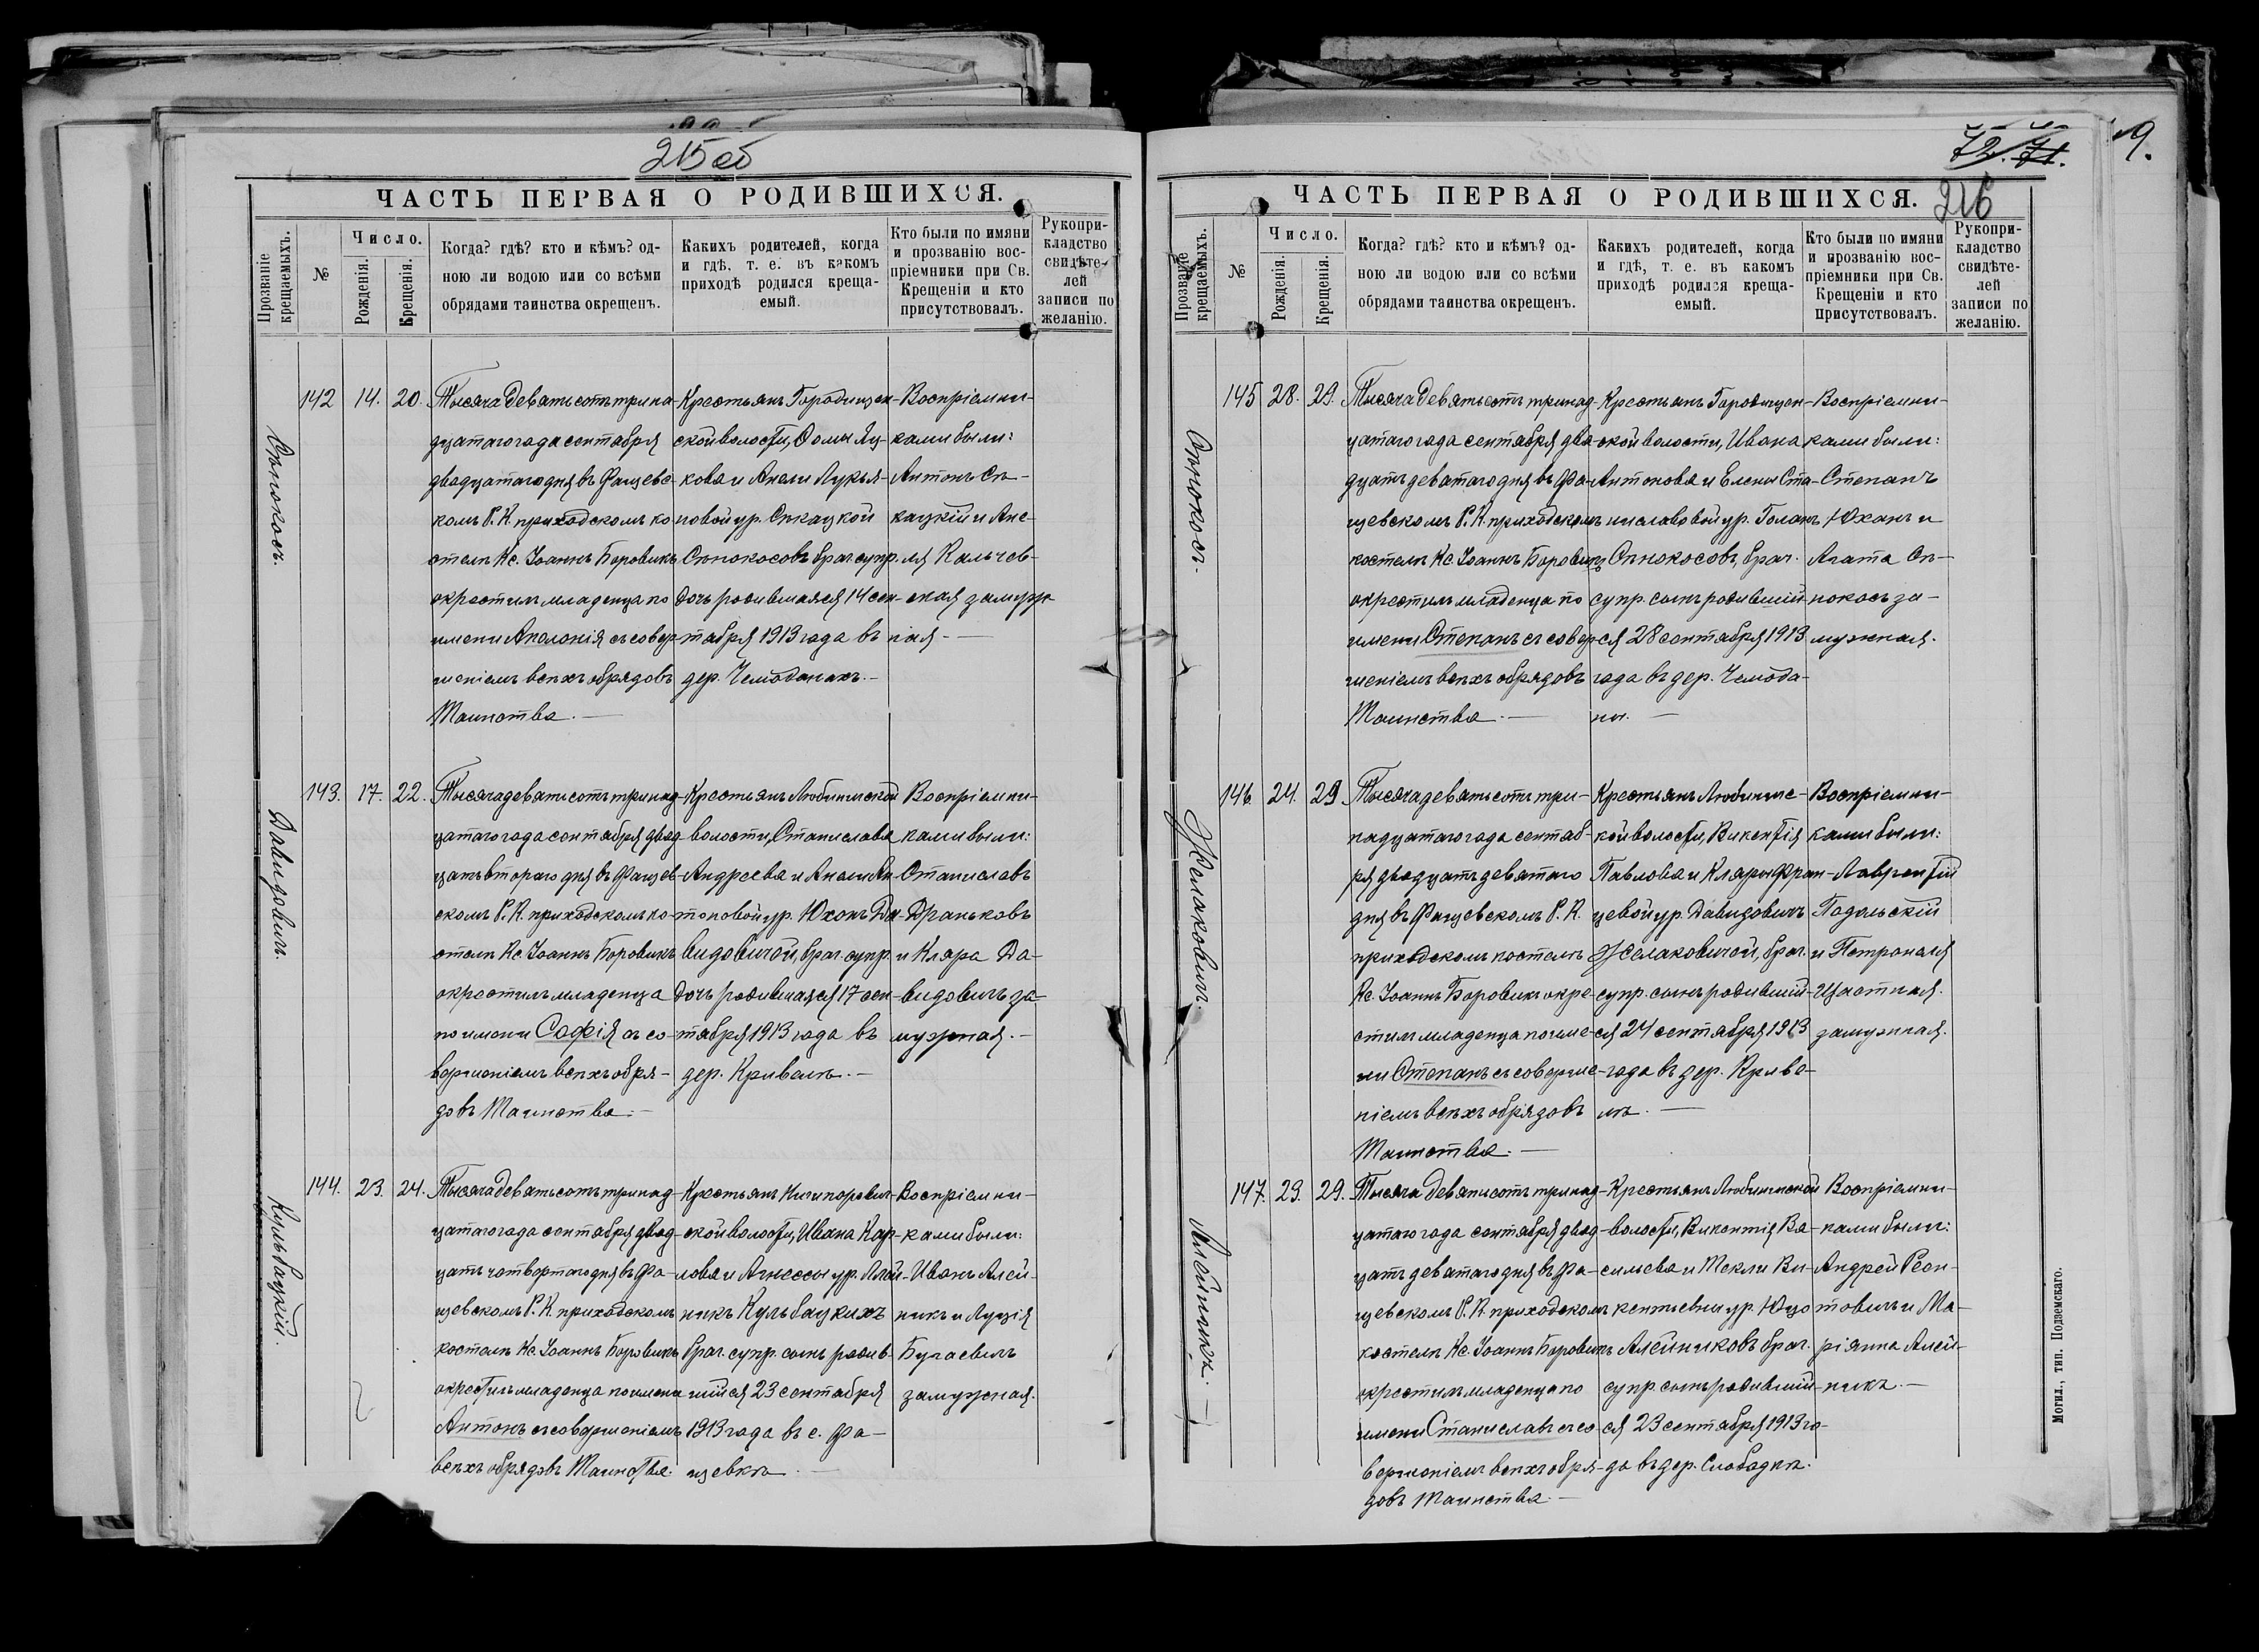 215 об
ЧАСТЬ ПЕРВАЯ О РОДИВШИХСЯ.
Прозваніе крещаемыхъ.
№
Число.
Рожденія.
Крещенія.
Когда? гдѣ? кто и кѣмъ? од-
ною ли водою или со всѣми
обрядами таинства окрещенъ.
Какихъ родителей, когда
и гдѣ, т. е. въ какомъ
приходѣ родился креща-
емый.
Кто были по имяни
и прозванію вос-
пріемники при Св.
Крещеніи и кто
присутствовалъ.
Рукопри-
кладство
свидѣте-
лей
записи по
желанію.
Сѣнокосъ.
142 14. 20.
Тысяча девятьсотъ трина-
дцатаго года сентября
двадцатаго дня въ Фащевс-
комъ Р. К. приходскомъ ко-
стелѣ Кс. Іоаннъ Боровикъ
окрестилъ младенца по
имени Аполонія съ совер-
шеніемъ всѣхъ обрядовъ
Таинства.
Крестьянъ Городищен-
ской волости, Ѳомы Яц-
кова и Анели Лукья-
новой ур. Спкацкой
Сѣнокосовъ брач. супр.
дочь родившаяся 14 сен-
тября 1913 года въ
дер. Чемоданахъ.
Воспріемни-
ками были:
Антонъ Сп-
кацкій и Ане-
ля Кальчев-
ская замуж-
няя.
Давидовичъ.
143. 17. 22.
Тысяча девятьсотъ тринад-
цатаго года сентября двад-
цать втораго дня въ Фащев-
скомъ Р. К. приходскомъ ко-
стелѣ Кс. Іоаннъ Боровикъ
окрестилъ младенца
по имени Софія съ со-
вершеніемъ всѣхъ обря-
довъ Таинства.
Крестьянъ Любинической
волости, Станислава
Андреева и Анели Ан-
тоновой ур. Юхонъ Да-
видовичой, брач. супр.
дочь родившаяся 17 сен-
тября 1913 года въ
дер. Кривелѣ.
Воспріемни-
ками были:
Станиславъ
Драньковъ
и Клара Да-
видовичъ за-
мужная.
Кульбацкій.
144. 23. 24.
Тысяча девятьсотъ тринад-
цатаго года сентября двад-
цать четвертаго дня въ Фа-
щевскомъ Р. К. приходскомъ
костелѣ Кс. Іоаннъ Боровикъ
окрестилъ младенца по имени
Антонъ съ совершеніемъ
всѣхъ обрядовъ Таинства.
Крестьянъ Ничипорович-
ской волости, Ивана Кар-
лова и Агнессы ур. Алей-
никъ Кульбацкихъ
брач. супр. сынъ родив-
шійся 23 сентября
1913 года въ с. Фа-
щевкѣ.
Воспріемни-
ками были:
Иванъ Алей-
никъ и Луція
Бугаевичъ
замужная.
72. 71. 9.
216
ЧАСТЬ ПЕРВАЯ О РОДИВШИХСЯ.
Прозваніе крещаемыхъ.
№
Число.
Рожденія.
Крещенія.
Когда? гдѣ? кто и кѣмъ? од-
ною ли водою или со всѣми
обрядами таинства окрещенъ.
Какихъ родителей, когда
и гдѣ, т. е. въ какомъ
приходѣ родился креща-
емый.
Кто были по имяни
и прозванію вос-
пріемники при Св.
Крещеніи и кто
присутствовалъ.
Рукопри-
кладство
свидѣте-
лей
записи по
желанію.
Сѣнокосъ.
145 28. 29.
Тысяча девятьсотъ тринад-
цатаго года сентября два-
дцать девятаго дня въ Фа-
щевскомъ Р. К. приходскомъ
костелѣ Кс. Іоаннъ Боровикъ
окрестилъ младенца по
имени Степанъ съ совер-
шеніемъ всѣхъ обрядовъ
Таинства.
Крестьянъ Городищен-
ской волости, Ивана
Антонова и Елены Ста-
ниславовой ур. Голанъ
Сѣнокосовъ, брач.
супр. сынъ родивший-
ся 28 сентября 1913
года въ дер. Чемода-
ны.
Воспріемни-
ками были:
Степанъ
Юханъ и
Агата Сѣ-
нокосъ за-
мужняя.
Желаковичъ.
146. 24. 29
Тысяча девятьсотъ три-
надцатаго года сентяб-
ря двадцать девятаго
дня въ Фащевскомъ Р. К.
приходскомъ костелѣ
Кс. Іоаннъ Боровикъ окре-
стилъ младенца по име-
ни Степанъ съ соверше-
ніемъ всѣхъ обрядовъ
Таинства.
Крестьянъ Любиничс-
кой волости, Викентія
Павлова и Клары Фран-
цевой ур. Давидовичъ
Желаковичой, брач.
супр. сынъ родивший-
ся 24 сентября 1913
года въ дер. Криве-
лѣ.
Воспріемни-
ками были:
Лаврентій
Подольскій
и Петронеля
замужная.
Алейникъ.
147. 23. 29.
Тысяча девятьсотъ тринад-
цатаго года сентября двад-
цать девятаго дня въ Фа-
щевскомъ Р. К. приходскомъ
костелѣ Кс. Іоаннъ Боровикъ
окрестилъ младенца по
имени Станиславъ съ со-
вершеніемъ всѣхъ обря-
довъ Таинства.
Крестьянъ Любинической
волости, Викентія Ва-
сильева и Текли Ви-
кентьевны ур. Юцо
Алейниковъ брач.
супр. сынъ родивший-
ся 23 сентября 1913 го-
да въ дер. Слободкѣ.
Воспріемни-
ками были:
Андрей Леон-
товичъ и Ма-
ріянна Алей-
никъ.
Могил., тип. Подземскаго.